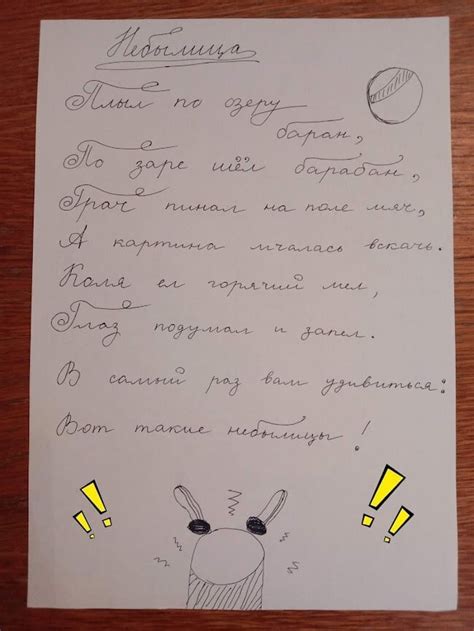 Небылица
Плыл по озеру
баран,
По заре шёл барабан,
Грач пинал на поле мяч,
А картина мчалась вскачь.
Коля ел горячий мел,
Глаз подумал и запел.
В самый раз вам удивиться:
Вот такие небылицы!